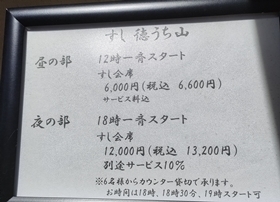 すし 徳うち山
昼の部 12時一斉スタート
すし会席
6,000円(税込 6,600円)
サービス料込
夜の部 18時一斉スタート
すし会席
12,000円(税込 13,200円)
別途サービス10%
※6名様からカウンター貸切で承ります。
お時間は18時、18時30分、19時スタート可